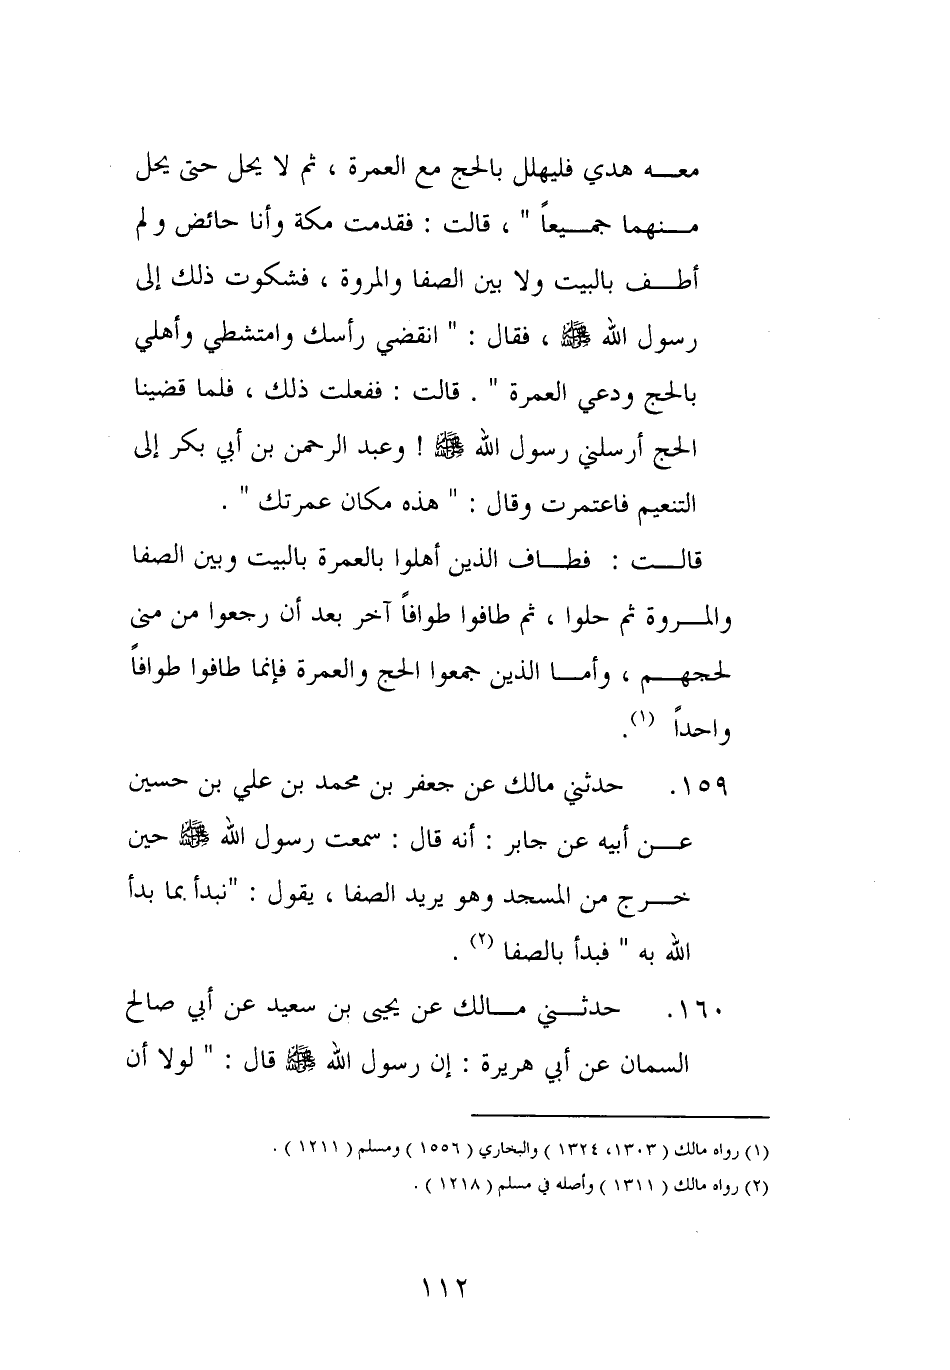 معـــه هدي فليهلل بالحج مع العمرة ، ثم لا يحل حتى يحل
مـــنهما جمـــيعاً " ، قالت : فقدمت مكة وأنا حائض ولم
أطـــف بالبيت ولا بين الصفا والمروة ، فشكوت ذلك إلى
رسول الله ﷺ ، فقال : " انقضي رأسك وامتشطي وأهلي
بالحج ودعي العمرة " . قالت : ففعلت ذلك ، فلما قضينا
الحج أرسلني رسول الله ﷺ ! وعبد الرحمن بن أبي بكر إلى
التنعيم فاعتمرت وقال : " هذه مكان عمرتك " .
قالـــت : فطـــاف الذين أهلوا بالعمرة بالبيت وبين الصفا
والمـــروة ثم حلوا ، ثم طافوا طوافاً آخر بعد أن رجعوا من منى
لحجهـــم ، وأمـــا الذين جمعوا الحج والعمرة فإنما طافوا طوافاً
واحداً (١).
١٥٩. حدثني مالك عن جعفر بن محمد بن علي بن حسين
عـــن أبيه عن جابر : أنه قال : سمعت رسول الله ﷺ حين
خـــرج من المسجد وهو يريد الصفا ، يقول : "نبدأ بما بدأ
الله به " فبدأ بالصفا (٢) .
١٦٠. حدثـــني مـــالك عن يحيى بن سعيد عن أبي صالح
السمان عن أبي هريرة : إن رسول الله ﷺ قال : " لولا أن
(١) رواه مالك ( ١٣٠٣، ١٣٢٤ ) والبخاري ( ١٥٥٦ ) ومسلم ( ١٢١١ ) .
(٢) رواه مالك ( ١٣١١ ) وأصله في مسلم ( ١٢١٨ ) .
١١٢